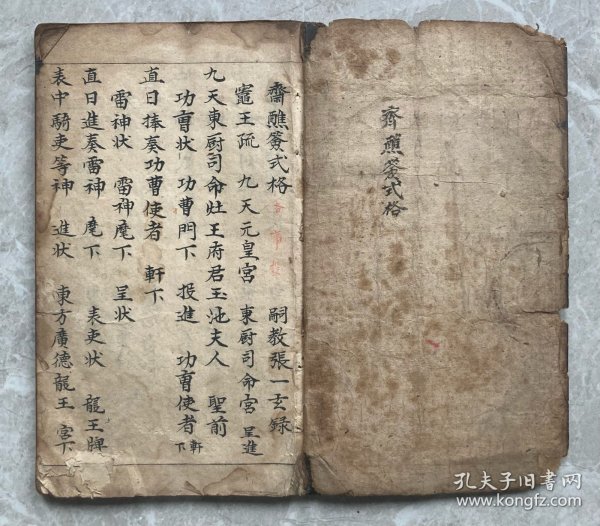 齋醮簽式格
齋醮簽式格 嗣教張一玄錄
竈王疏 九天元皇宮 東厨司命宮 呈進
九天東厨司命灶王府君玉池夫人 聖前
功曺状 功曹門下 投進 功曺使者 軒下
直日捧奏功曹使者 軒下
雷神状 雷神麾下 呈状
直日進奏雷神 麾下 表吏状 龍王牌
表中騎吏等神 進状 東方廣德龍王 宮下
孔夫子旧书网
www.kongfz.com